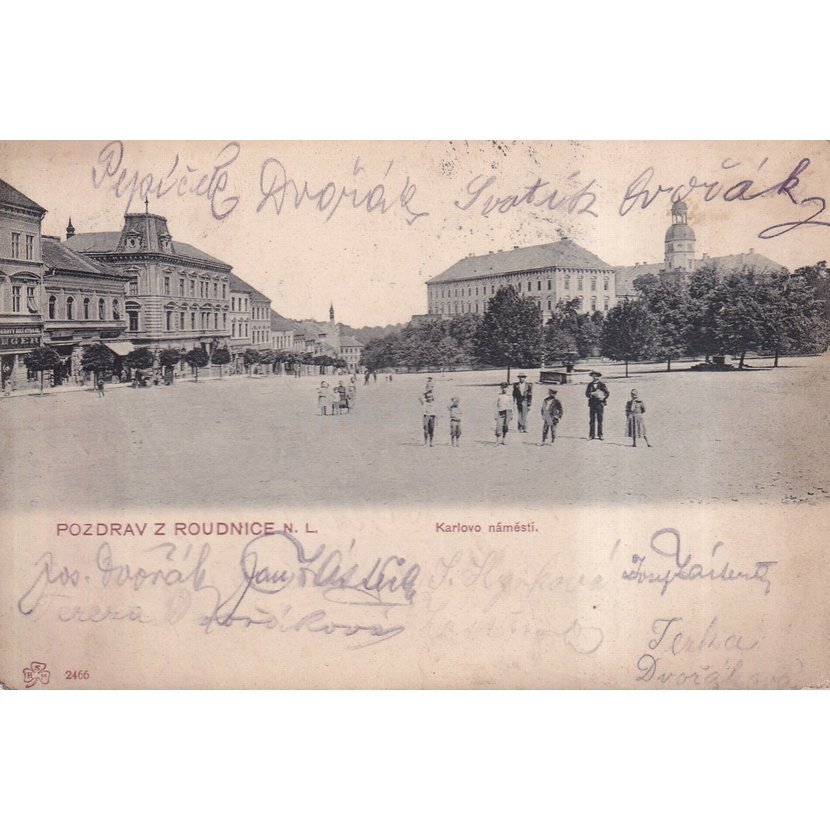 Pepíček Dvořák Svatík Dvořák
NGER
POZDRAV Z ROUDNICE N. L.
Karlovo náměstí.
Jos. Dvořák Jan
Tereza Dvořáková
Josef
Terka
Dvořáková
2466